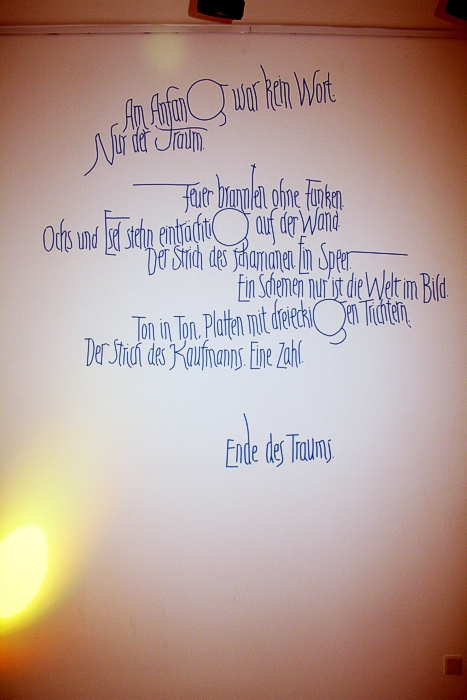 Am Anfang war kein Wort.
Nur der Traum.
Feuer brannten ohne Funken.
Ochs und Esel stehn einträchtig auf der Wand.
Der Strich des Schamanen. Ein Speer.
Ein Schemen nur ist die Welt im Bild.
Ton in Ton. Platten mit dreieckigen Trichtern.
Der Strich des Kaufmanns. Eine Zahl.
Ende des Traums.